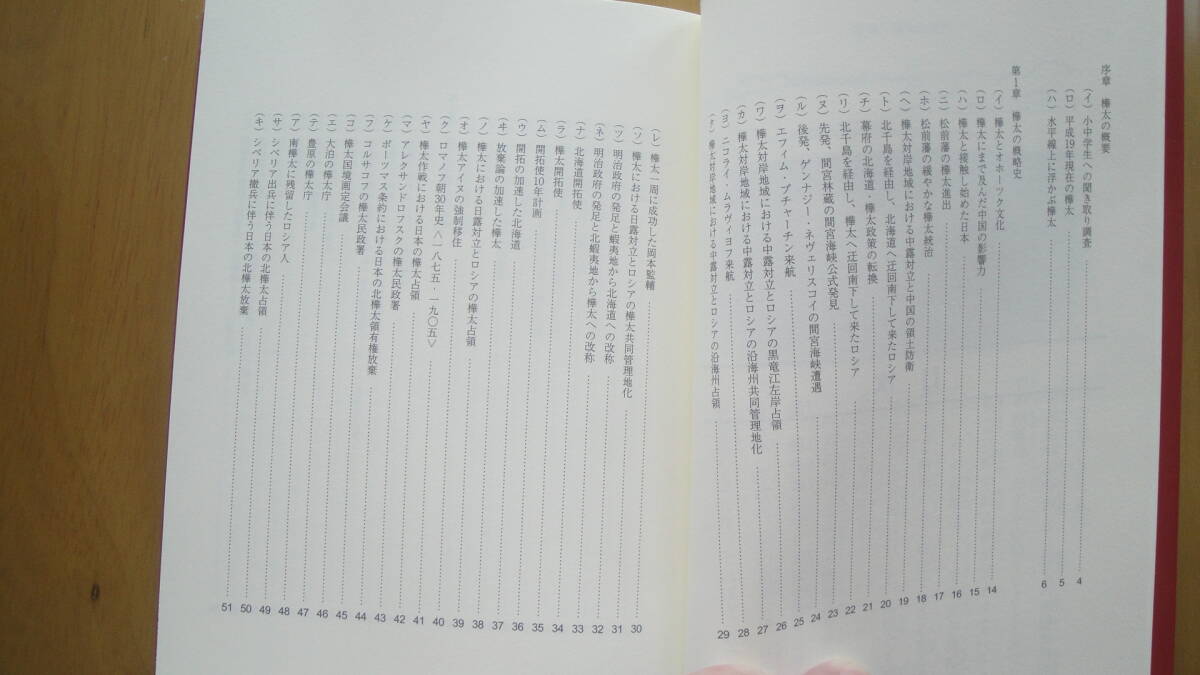 序章 樺太の概要
(イ) 小中学生への聞き取り調査 4
(ロ) 平成19年現在の樺太 5
(ハ) 水平線上に浮かぶ樺太 6
第1章 樺太の概略史
(イ) 樺太とオホーツク文化 14
(ロ) 樺太にまで及んだ中国の影響力 15
(ハ) 樺太と接触し始めた日本 16
(ニ) 松前藩の樺太進出 17
(ホ) 松前藩の緩やかな樺太統治 18
(ヘ) 樺太対岸地域における中露対立と中国の領土防衛 19
(ト) 北千島を経由し、北海道へ迂回南下して来たロシア 20
(チ) 幕府の北海道、樺太政策の転換 21
(リ) 北千島を経由し、樺太へ迂回南下して来たロシア 22
(ヌ) 先発、間宮林蔵の間宮海峡公式発見 23
(ル) 後発、ゲンナジー・ネヴェリスコイの間宮海峡遭遇 24
(ヲ) エフィム・プチャーチン来航 25
(ワ) 樺太対岸地域における中露対立とロシアの黒竜江左岸占領 26
(カ) 樺太対岸地域における中露対立とロシアの沿海州共同管理地化 27
(ヨ) ニコライ・ムラヴィヨフ来航 28
(タ) 樺太対岸地域における中露対立とロシアの沿海州占領 29
(レ) 樺太一周に成功した岡本監輔 30
(ソ) 樺太における日露対立とロシアの樺太共同管理地化 31
(ツ) 明治政府の発足と蝦夷地から北海道への改称 32
(ネ) 明治政府の発足と北蝦夷地から樺太への改称 32
(ナ) 北海道開拓使 33
(ラ) 樺太開拓使 34
(ム) 開拓使10年計画 35
(ウ) 開拓の加速した北海道 36
(ヰ) 放棄論の加速した樺太 37
(ノ) 樺太における日露対立とロシアの樺太占領 38
(オ) 樺太アイヌの強制移住 39
(ク) ロマノフ朝30年史〈一八七五‐一九〇五〉 40
(ヤ) 樺太作戦における日本の樺太占領 41
(マ) アレクサンドロフスクの樺太民政署 42
(ケ) ポーツマス条約における日本の北樺太領有権放棄 43
(フ) コルサコフの樺太民政署 44
(コ) 樺太国境画定会議 45
(エ) 大泊の樺太庁 46
(テ) 豊原の樺太庁 47
(ア) 南樺太に残留したロシア人 48
(サ) シベリア出兵に伴う日本の北樺太占領 49
(キ) シベリア撤兵に伴う日本の北樺太放棄 50
51